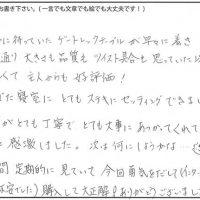 お書き下さい。(一言でも文章でも絵でも大丈夫です！)
に待っていたゲートレックテーブルが早々に着き
通り大きさも品質もツイスト具合も思っていた以
くて主人からも好評価！
でた寝室にとてもステキにセッティングできまし
がとても丁寧でとても大事にあつかってくれて
に感激しました。次は何にしようかな…
間定期的に見ていて今回勇気をだして(インター
不安でした)購入して大正解！ありがとうございまし